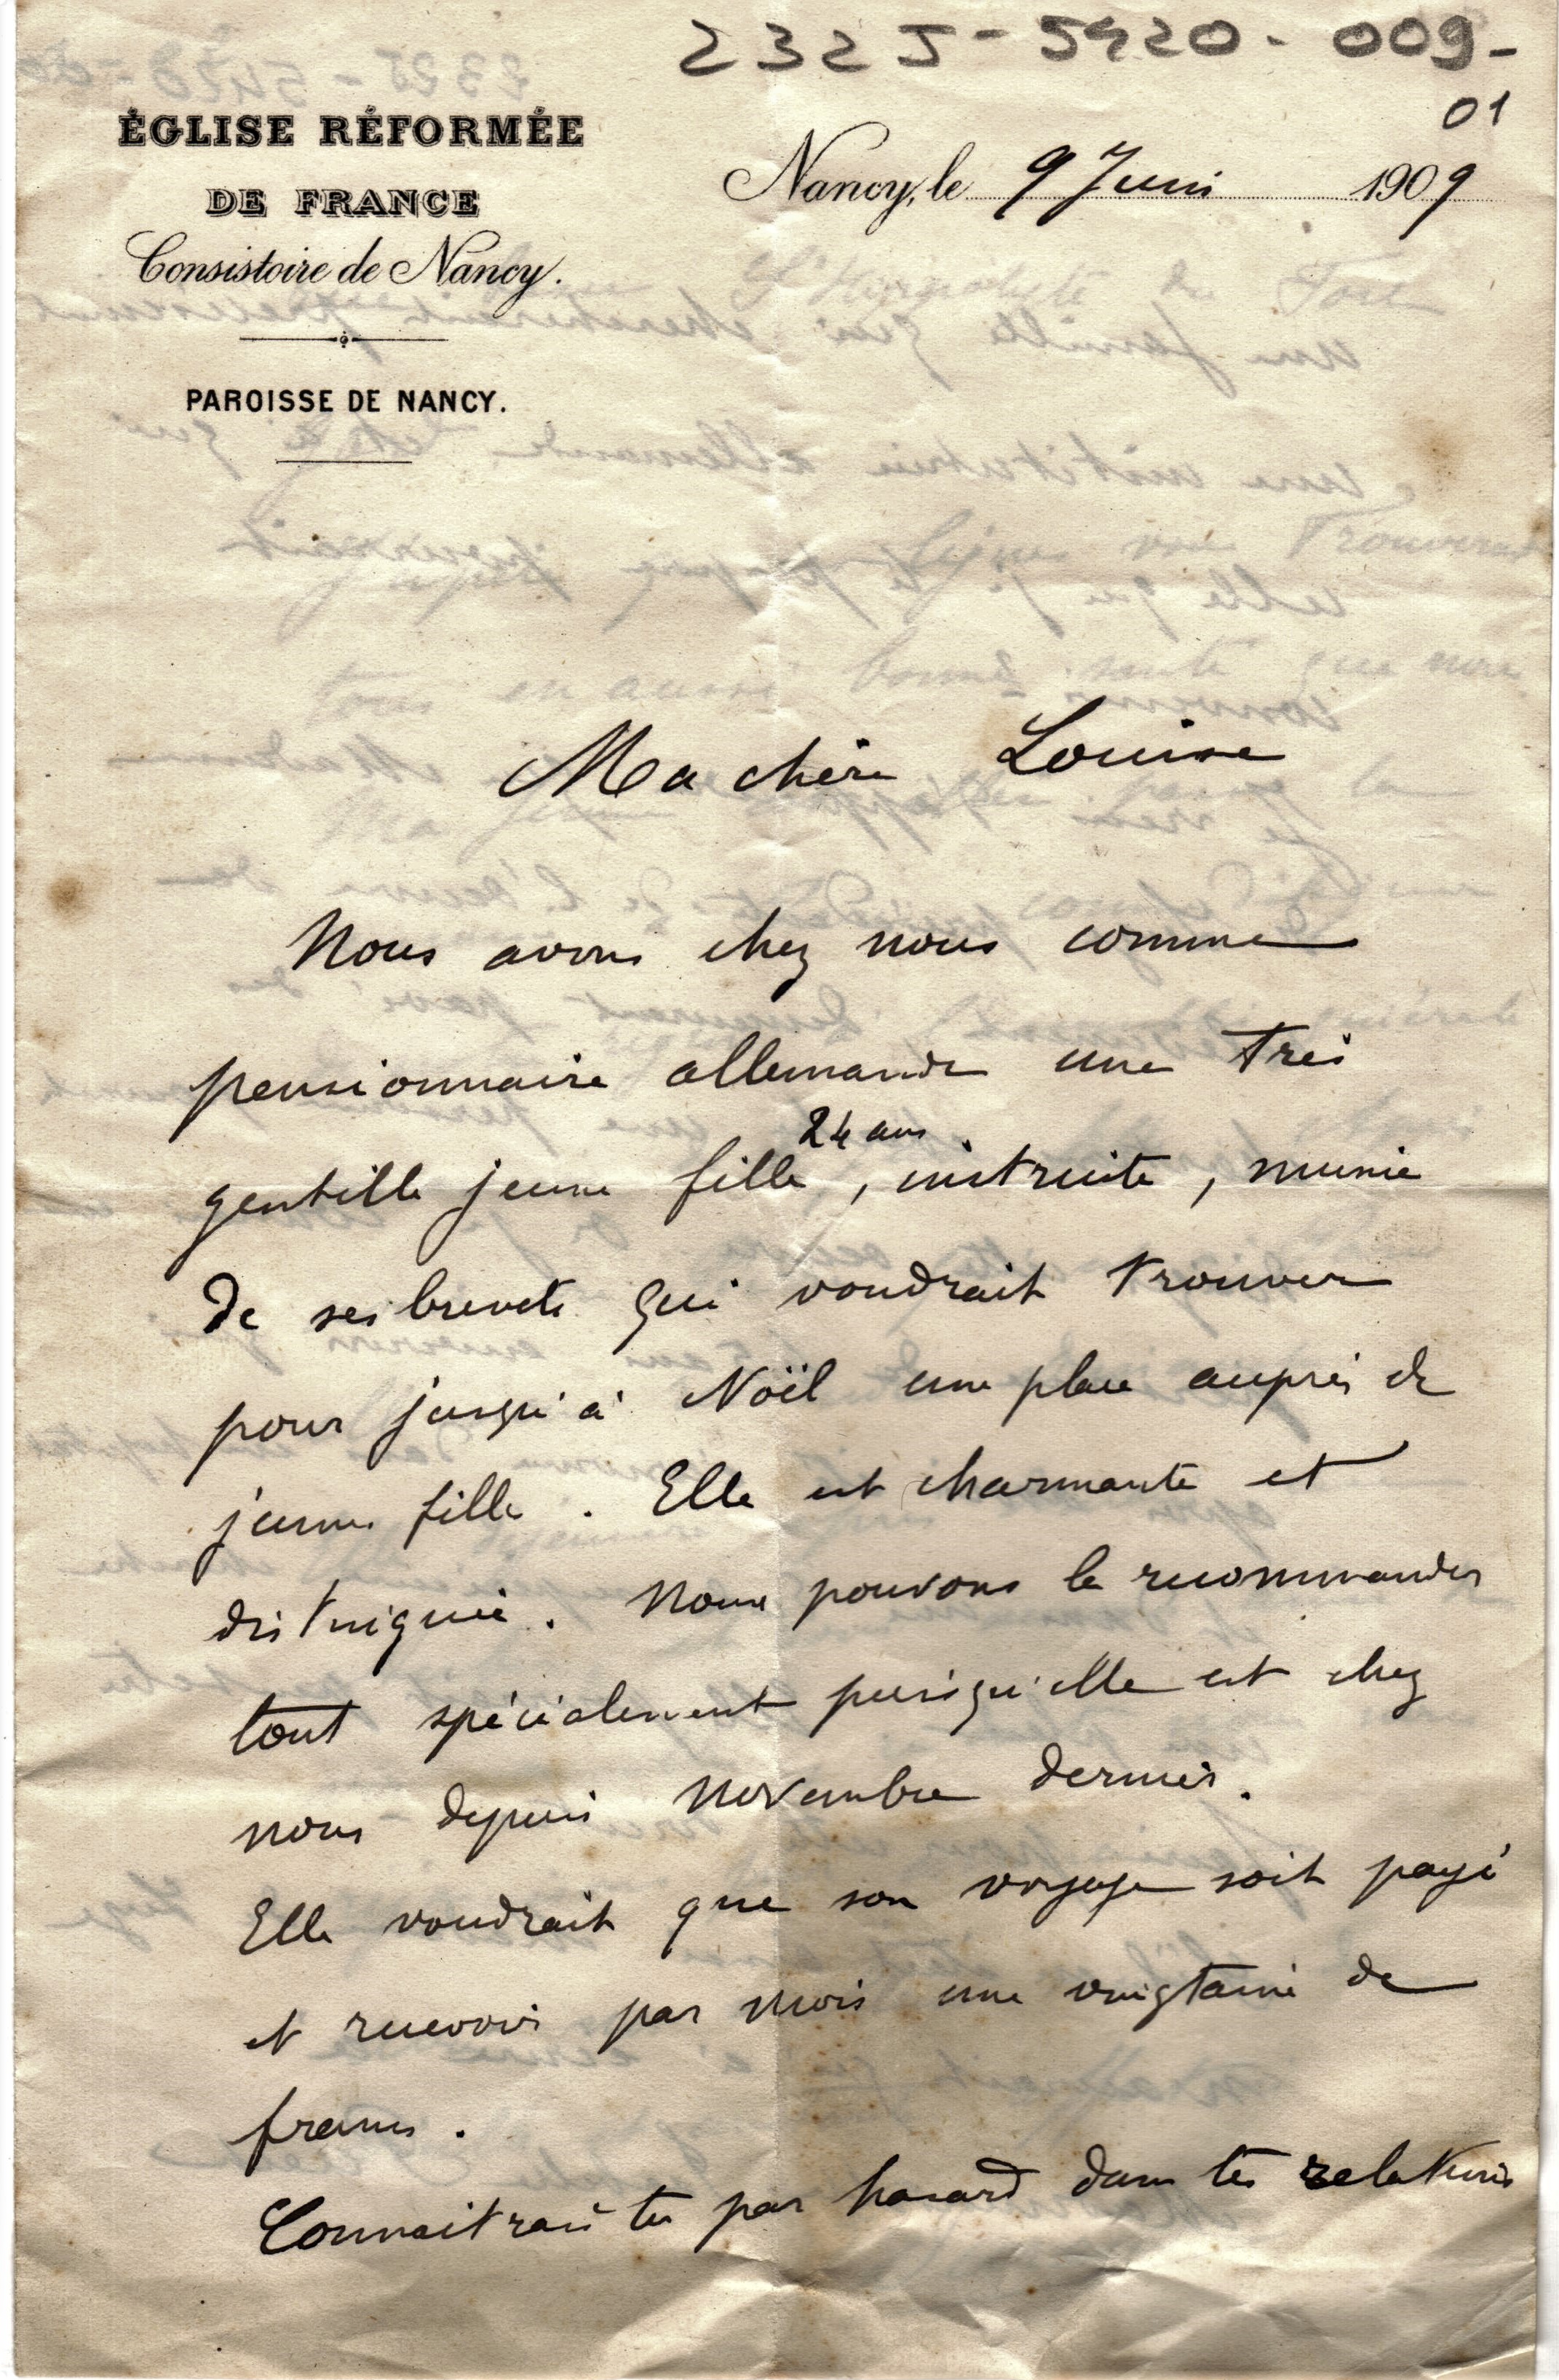 2325-5420-009-
01
ÉGLISE RÉFORMÉE
DE FRANCE
Consistoire de Nancy.
PAROISSE DE NANCY.
Nancy, le 9 Juin 1909
Ma chère Louise
Nous avons chez nous comme
pensionnaire allemande une très
24 ans
gentille jeune fille, instruite, munie
de ses brevets qui voudrait trouver
pour jusqu'à Noël une place auprès de
jeune fille. Elle est charmante et
distinguée. Nous pouvons la recommander
tout spécialement puisqu'elle est chez
nous depuis novembre dernier.
Elle voudrait que son voyage soit payé
et recevoir par mois une vingtaine de
francs.
Connaitrais tu par hasard dans tes relations